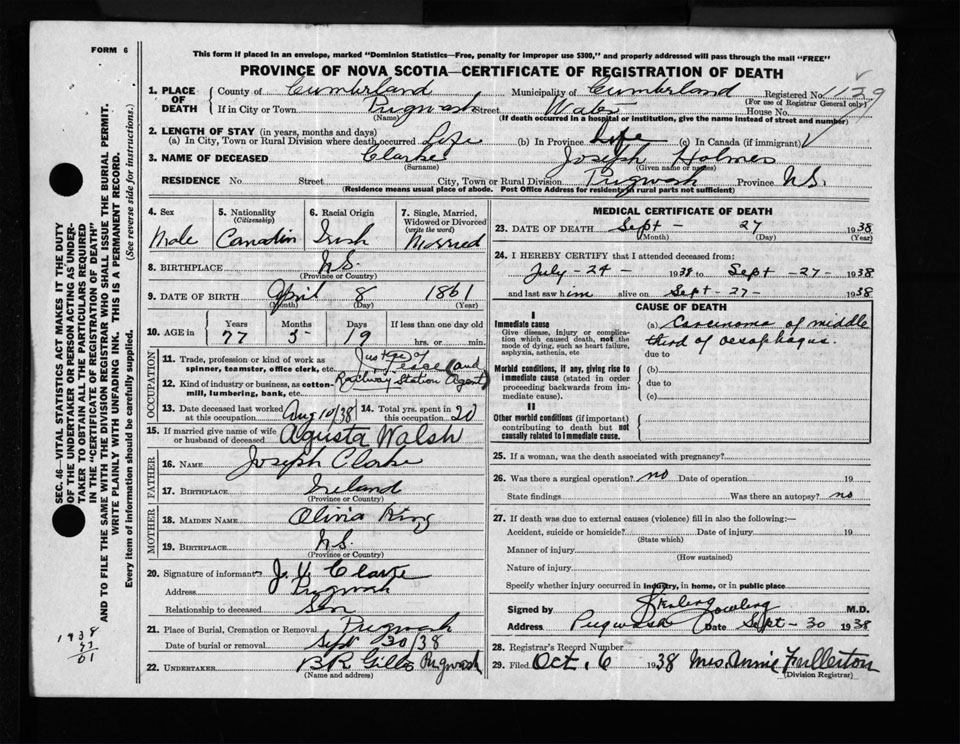 FORM 6
This form if placed in an envelope, marked "Dominion Statistics—Free, penalty for improper use $300," and properly addressed will pass through the mail "FREE"
PROVINCE OF NOVA SCOTIA—CERTIFICATE OF REGISTRATION OF DEATH
1. PLACE OF DEATH
County of Cumberland Municipality of Cumberland Registered No. 1129
(For use of Registrar General only)
If in City or Town Pugwash Street Water House No.
(Name) (If death occurred in a hospital or institution, give the name instead of street and number)
2. LENGTH OF STAY (in years, months and days)
(a) In City, Town or Rural Division where death occurred Life (b) In Province Life (c) In Canada (if immigrant)
3. NAME OF DECEASED Clarke Joseph Holmes
(Surname) (Given name or names)
RESIDENCE No. Street City, Town or Rural Division Pugwash Province N.S.
(Residence means usual place of abode. Post Office Address for residents in rural parts not sufficient)
4. Sex
Male
5. Nationality
(Citizenship)
Canadin
6. Racial Origin
Irish
7. Single, Married, Widowed or Divorced
(write the word)
Married
8. BIRTHPLACE N.S.
(Province or Country)
9. DATE OF BIRTH April 8 1861
(Month) (Day) (Year)
10. AGE in
Years Months Days If less than one day old
77 5 19 hrs. or min.
OCCUPATION
11. Trade, profession or kind of work as spinner, teamster, office clerk, etc. Justice of Peace (and
12. Kind of industry or business, as cotton-mill, lumbering, bank, etc. Railway Station Agent)
13. Date deceased last worked at this occupation Aug 10/38
14. Total yrs. spent in this occupation 20
15. If married give name of wife or husband of deceased Agusta Walsh
FATHER
16. NAME Joseph Clarke
17. BIRTHPLACE Ireland
(Province or Country)
MOTHER
18. MAIDEN NAME Olivia King
19. BIRTHPLACE N.S.
(Province or Country)
20. Signature of informant J. H. Clarke
Address Pugwash
Relationship to deceased Son
21. Place of Burial, Cremation or Removal Pugwash
Date of burial or removal Sept 30/38
22. UNDERTAKER B R Gillis Pugwash
(Name and address)
MEDICAL CERTIFICATE OF DEATH
23. DATE OF DEATH Sept - 27 1938
(Month) (Day) (Year)
24. I HEREBY CERTIFY that I attended deceased from:
July - 24 - 1938 to Sept - 27 - 1938
and last saw him alive on Sept - 27 - 1938
CAUSE OF DEATH
I
Immediate cause
Give disease, injury or complication which caused death, not the mode of dying, such as heart failure, asphyxia, asthenia, etc
(a) Carcinoma of middle
third of oesophagus.
due to
Morbid conditions, if any, giving rise to immediate cause (stated in order proceeding backwards from immediate cause).
(b)
due to
(c)
II
Other morbid conditions (if important) contributing to death but not causally related to immediate cause.
25. If a woman, was the death associated with pregnancy?
26. Was there a surgical operation? no Date of operation 19
State findings Was there an autopsy? no
27. If death was due to external causes (violence) fill in also the following:—
Accident, suicide or homicide? Date of injury 19
(State which)
Manner of injury
(How sustained)
Nature of injury
Specify whether injury occurred in industry, in home, or in public place
Signed by M.D.
Address Pugwash Date Sept - 30 1938
28. Registrar's Record Number
29. Filed Oct. 6 1938 Mrs. Annie Fullerton
(Division Registrar)
SEC. 46—VITAL STATISTICS ACT MAKES IT THE DUTY
OF THE UNDERTAKER OR PERSON ACTING AS UNDER-
TAKER TO OBTAIN ALL THE PARTICULARS REQUIRED
IN THE "CERTIFICATE OF REGISTRATION OF DEATH"
AND TO FILE THE SAME WITH THE DIVISION REGISTRAR WHO SHALL ISSUE THE BURIAL PERMIT.
WRITE PLAINLY WITH UNFADING INK. THIS IS A PERMANENT RECORD.
Every item of information should be carefully supplied. (See reverse side for instructions.)
1938
77
61